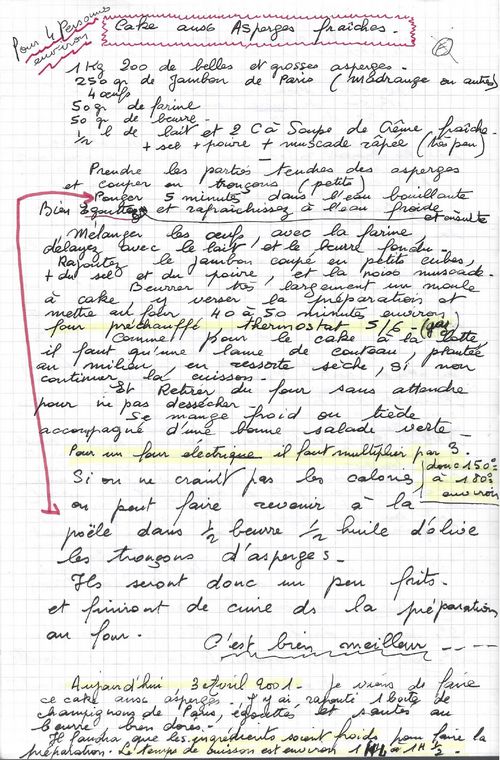 Pour 4 Personnes
environ
Cake aux Asperges fraîches.
1 Kg 200 de belles et grosses asperges.
250 gr de Jambon de Paris (Madrange ou autres)
4 œufs
50 gr de farine
50 gr de beurre.
1/2 l de lait et 2 C à Soupe de Crème fraîche.
+ sel + poivre + muscade râpée (très peu)
Prendre les parties tendres des asperges
et couper en tronçons (petits)
Plonger 5 minutes dans l'eau bouillante
Bien égouttez et rafraîchissez à l'eau froide
et ensuite
Mélanger les œufs avec la farine
délayez avec le lait, et le beurre fondu.
Rajoutez le jambon coupé en petits cubes,
+ du sel et du poivre, et la noix muscade.
Beurrer très largement un moule
à cake, y verser la préparation et
mettre au four 40 à 50 minutes environ
four préchauffé, thermostat 5/6 - (gaz)
Comme pour le cake à la
il faut qu'une lame de couteau, plantée
au milieu, en ressorte sèche, si non
continuer la cuisson.
Et Retirer du four sans attendre
pour ne pas dessécher.
Se mange froid ou tiède
accompagné d'une bonne salade verte
Pour un four électrique il faut multiplier par 3.
donc 150°
à 180°
environ
Si on ne craint pas les calories
on peut faire revenir à la
poële dans 1/2 beurre 1/2 huile d'olive
les tronçons d'asperges.
Ils seront donc un peu frits.
et finiront de cuire ds la préparation
au four.
C'est bien meilleur ----
Aujourd'hui 3 Avril 2001. Je viens de faire
ce cake aux asperges. J'y ai rajouté 1 boîte de
champignons de Paris, égouttés et sautés au
beurre bien dorés.
Il faudra que les ingrédients soient froids pour faire la
préparation. Le temps de cuisson est environ 1H à 1H 1/2.